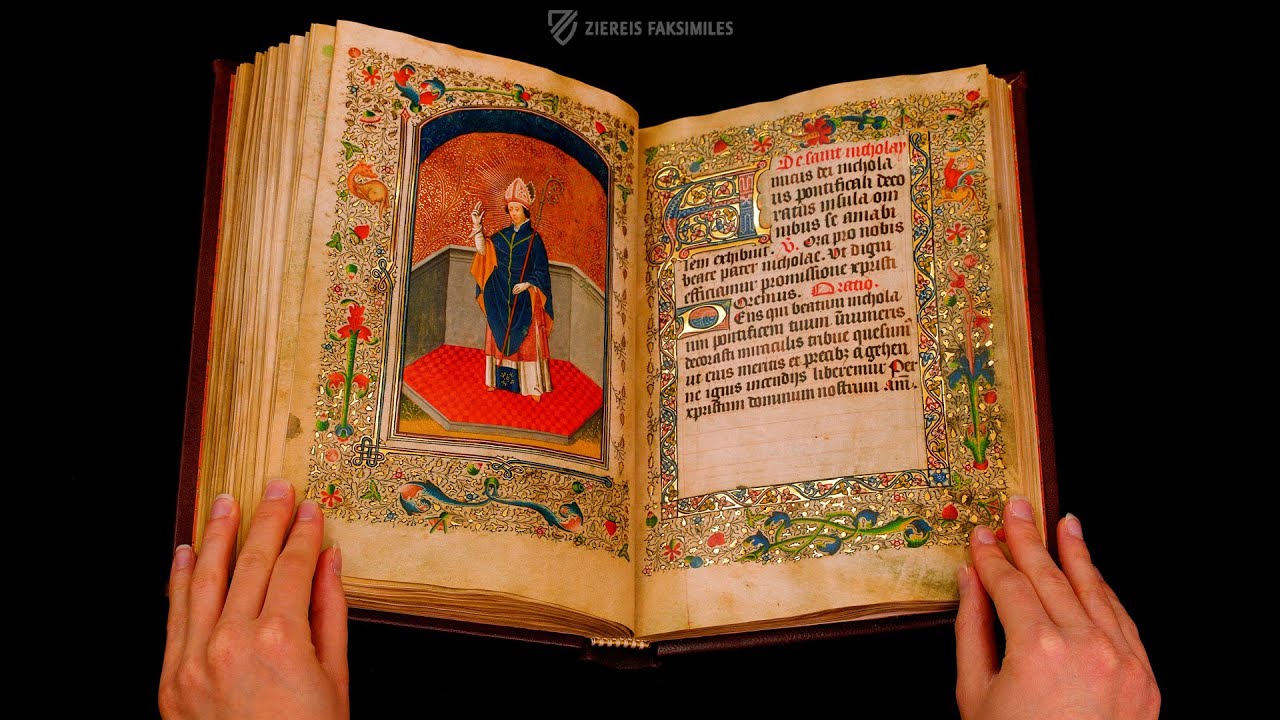 ZIEREIS FAKSIMILES
De saint nicholay
Amicus dei nichola
us pontificali deco
ratus insula om
nibus se amabi
lem exhibuit. V. Ora pro nobis
beate pater nicholae. Vt digni
efficiamur promissione xpristi
Oremus. Oratio.
Deus qui beatum nichola
um pontificem tuum īnumeris
decorasti miraculis tribue quesum᷒
ut eius meritis et precibꝫ a gehen
ne ignis incendijs liberemur Per
xpristum dominum nostrum am̄.